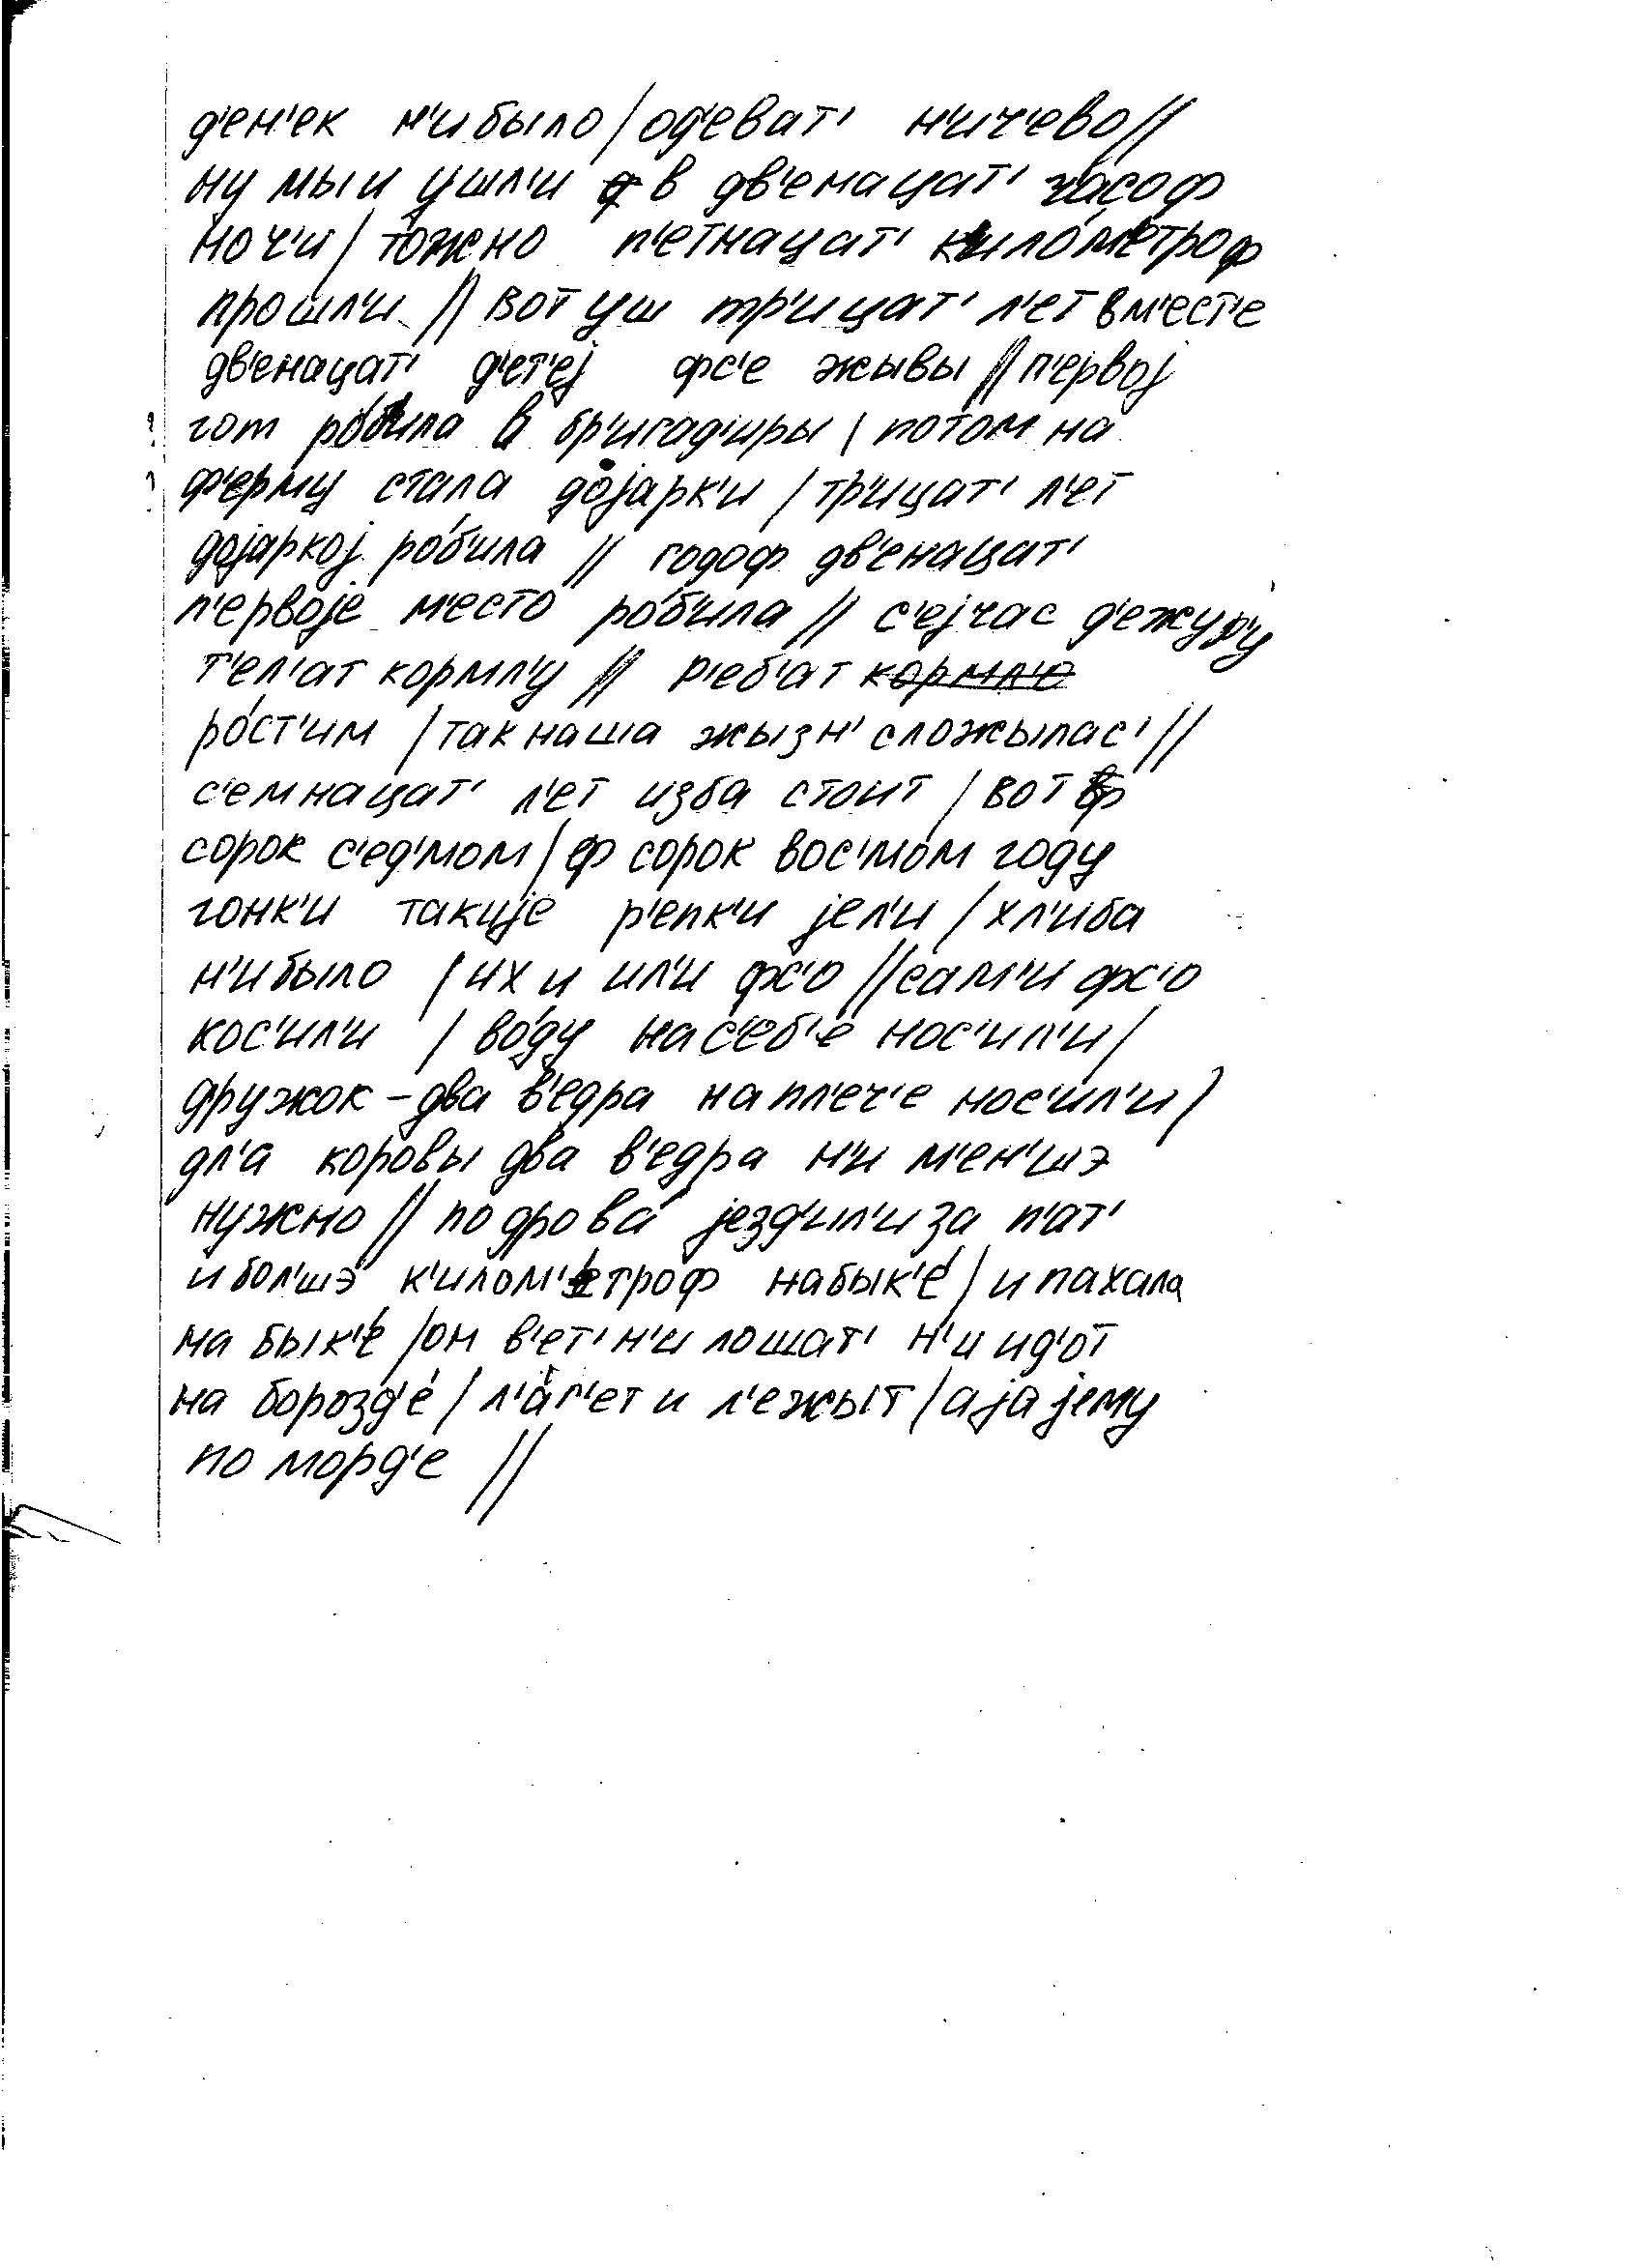 д'ен'ек н'и было / од'еват' н'ич'ево //
ну мы и ушл'и в дв'енацат' часоф
ноч'и / то́жно п'етнацат' кило́м'етроф
прошл'и // вот уш тр'ицат' л'ет вм'ест'е
дв'енацат' д'ет'еј фс'е жывы // п'ервој
гот ро́б'ила в бр'игад'иры / потом на
ф'ерму стала дојарк'и / тр'ицат' л'ет
дојаркој ро́б'ила // годоф дв'енацат'
п'ервоје м'есто ро́б'ила // с'ејчас д'ежур'у
т'ел'ат кормл'у // р'еб'ат кормл'о
ро́ст'им / так наша жызн' сложылас' //
с'емнацат' л'ет изба стоит / вот
сорок с'ед'мом / ф сорок вос'мом году
гонк'и такије р'епк'и јел'и / хл'иба
н'и было / их и ил'и фс'о // сам'и фс'о
кос'ил'и / во́ду на с'еб'е́ нос'ил'и /
дружок – два в'едра на пл'еч'е нос'ил'и /
дл'а коровы два в'едра н'и м'ен'шэ
нужно // по дрова́ језд'ил'и за п'ат'
и бол'шэ к'илом'етроф на бык'е́ / и пахала
на бык'е́ / он в'ет' н'и лошат' н'и ид'от
на борозд'е́ / л'а́г'ет и л'ежыт / а ја јему
по морд'е //